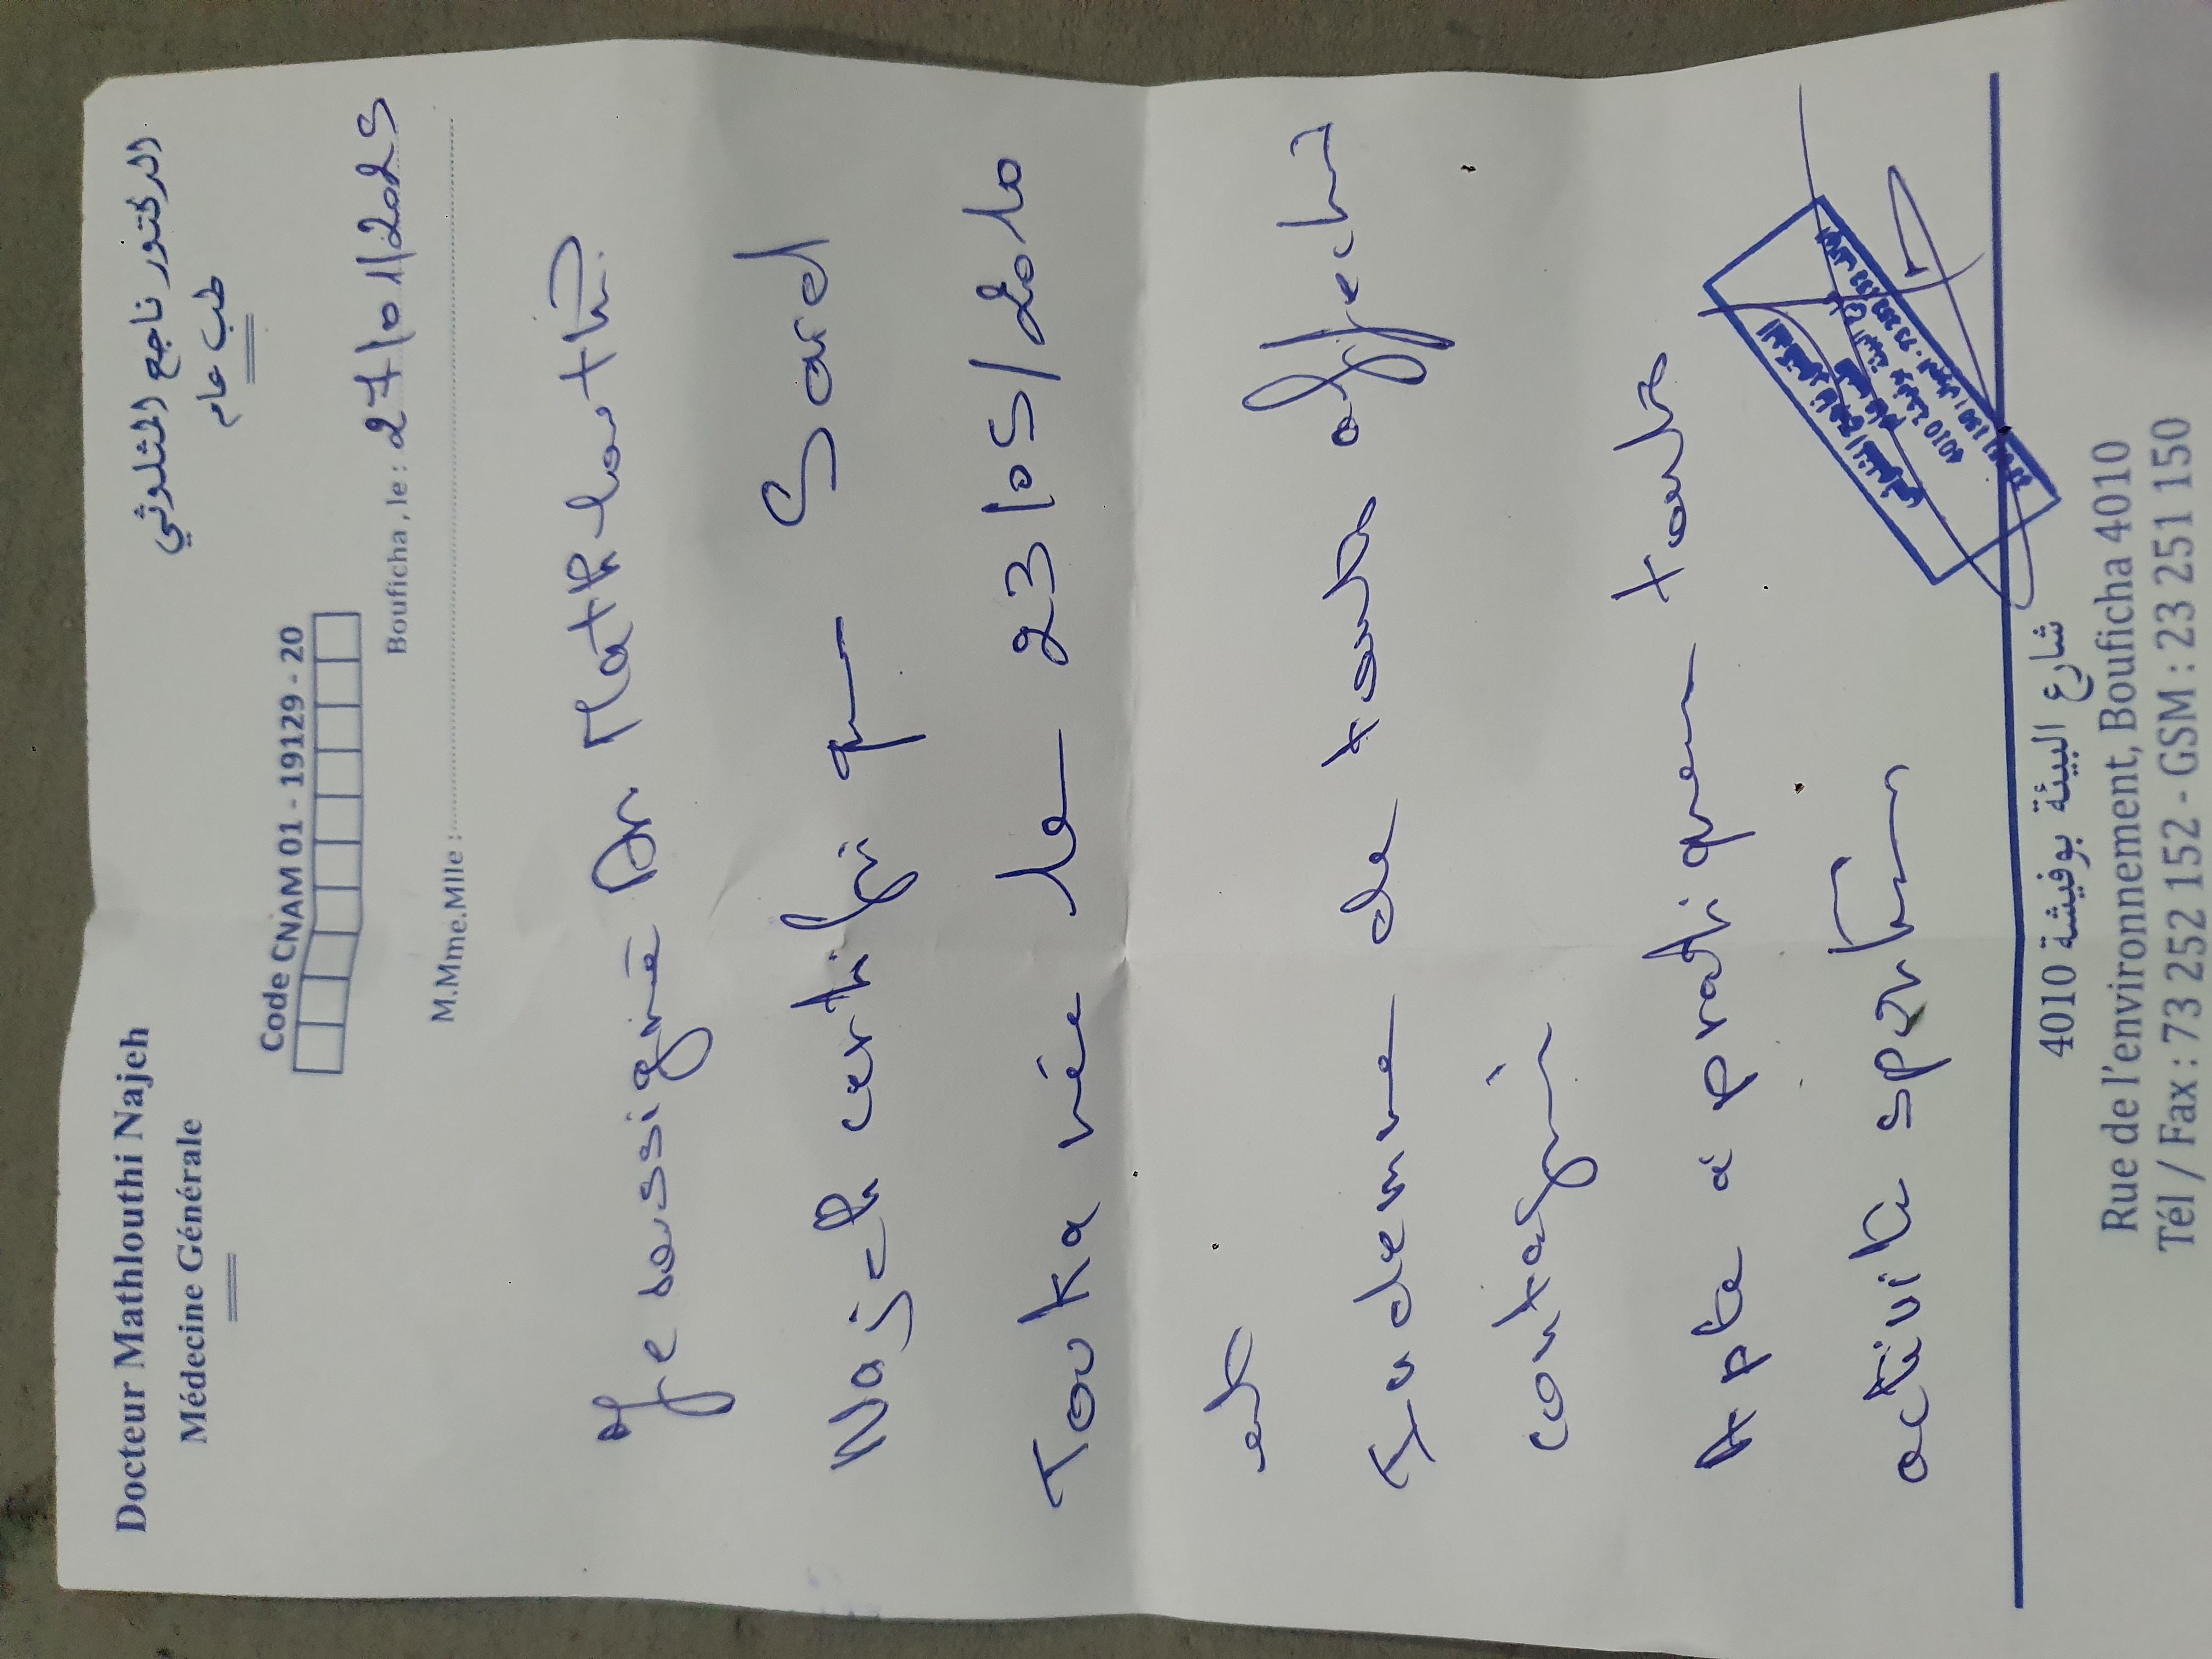 Docteur Mathlouthi Najeh
الدكتور ناجع المثلوثي
Médecine Générale
طب عام
Code CNAM 01 - 19129 - 20
Bouficha, le : 27/01/2025
M.Mme.Mlle :
Je soussigné Dr Mathlouthi
Najeh certifie que Sared
Touka née le 23/05/2010
est
Indemne de toute affection
contagieuse
Apte à pratiquer toute
activité sportive
4010 شارع البيئة بوفيشة
Rue de l'environnement, Bouficha 4010
Tél / Fax : 73 252 152 - GSM : 23 251 150